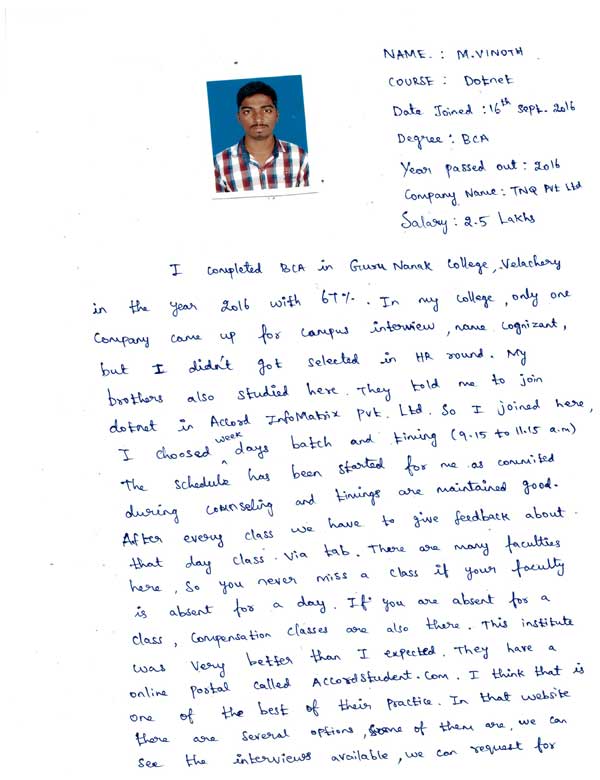 NAME : M.VINOTH
COURSE : Dotnet
Date Joined : 16th Sept. 2016
Degree : BCA
Year passed out : 2016
Company Name : TNQ Pvt Ltd
Salary : 2.5 Lakhs
I completed BCA in Guru Nanak College, Velachery
in the year 2016 with 67%. In my college, only one
Company came up for campus interview, name Cognizant,
but I didn't got selected in HR round. My
brothers also studied here. They told me to join
dotnet in Accord InfoMatrix Pvt. Ltd. So I joined here,
I choosed week days batch and timing (9.15 to 11.15 a.m)
The schedule has been started for me as commited
during counseling and timings are maintained good.
After every class we have to give feedback about
that day class via tab. There are many faculties
here, So you never miss a class if your faculty
is absent for a day. If you are absent for a
class, Compensation classes are also there. This institute
was very better than I expected. They have a
online postal called AccordStudent.com. I think that is
one of the best of their practice. In that website
there are several options, some of them are, we can
see the interviews available, we can request for